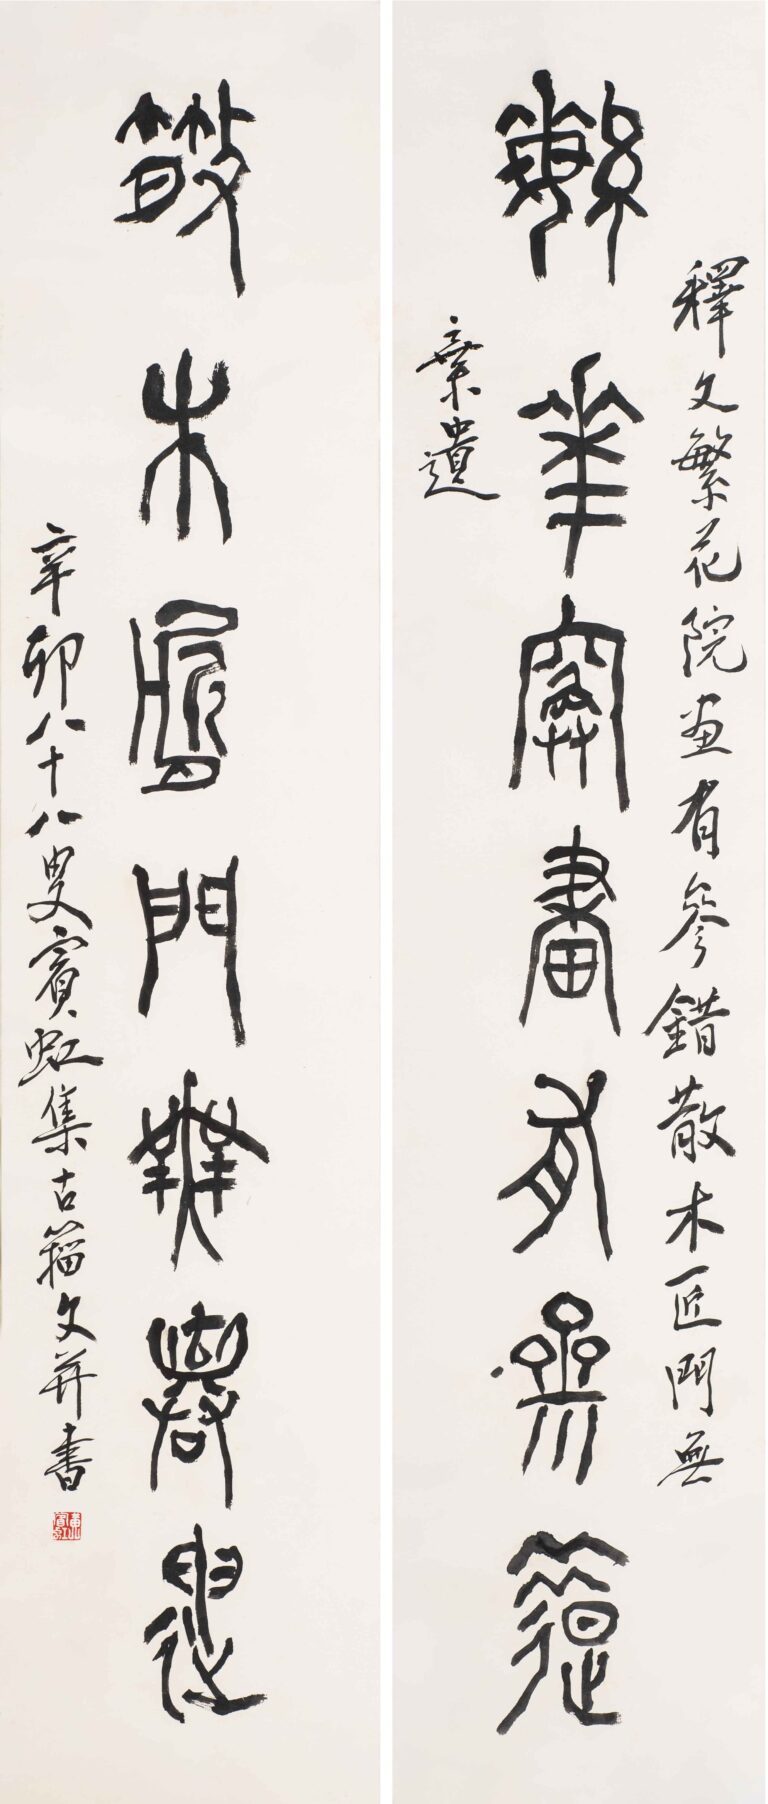 釋文繁花院画有參錯散木匠門無
緐華寏畫有參錯
棄遺
散木匠門無棄遺
辛卯八十八叟賓虹集古籀文并書